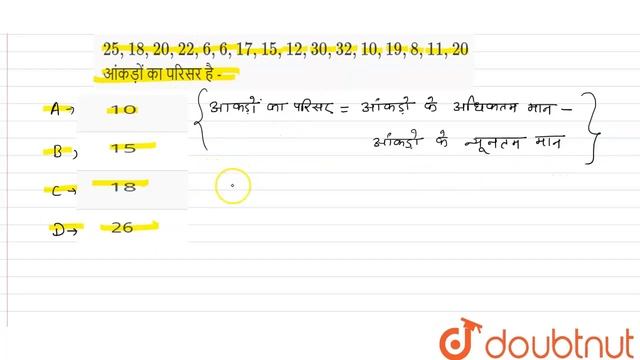 25, 18, 20, 22, 6, 6, 17, 15, 12, 30, 32, 10, 19, 8, 11, 20
आंकड़ों का परिसर है -
A→ 10
{ आकड़ों का परिसर = आंकड़ो के अधिकतम मान -
आंकड़ो के न्यूनतम मान }
B, 15
C→ 18
D→ 26
doubtnut